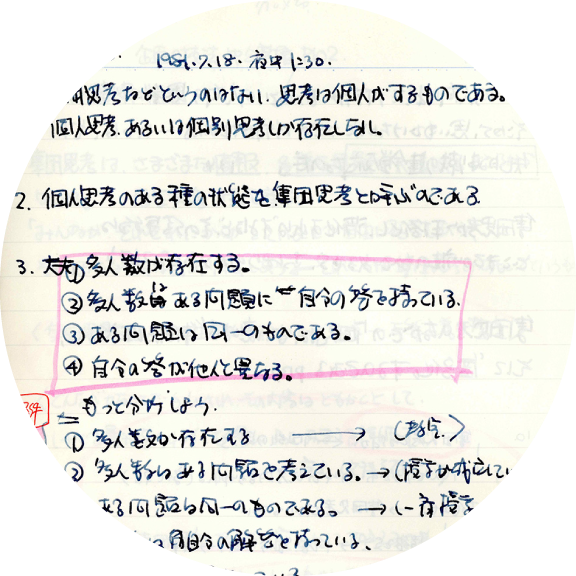 1986.7.18. 夜中1:30.
思考などというのはない. 思考は個人がするものである。
個人思考、あるいは個別思考しか存在しない。
2. 個人思考のある種の状態を集団思考と呼ぶのである
3. ① 多人数が存在する。
② 多人数は ある問題に 自分の答を持っている.
③ ある問題は同一のものである。
④ 自分の答が他人と異なる。
もっと分析しよう.
① 多人数が存在する →
② 多人数は ある問題を考えている。→
ある問題は同一のものである。→
自分の解答を持っている、